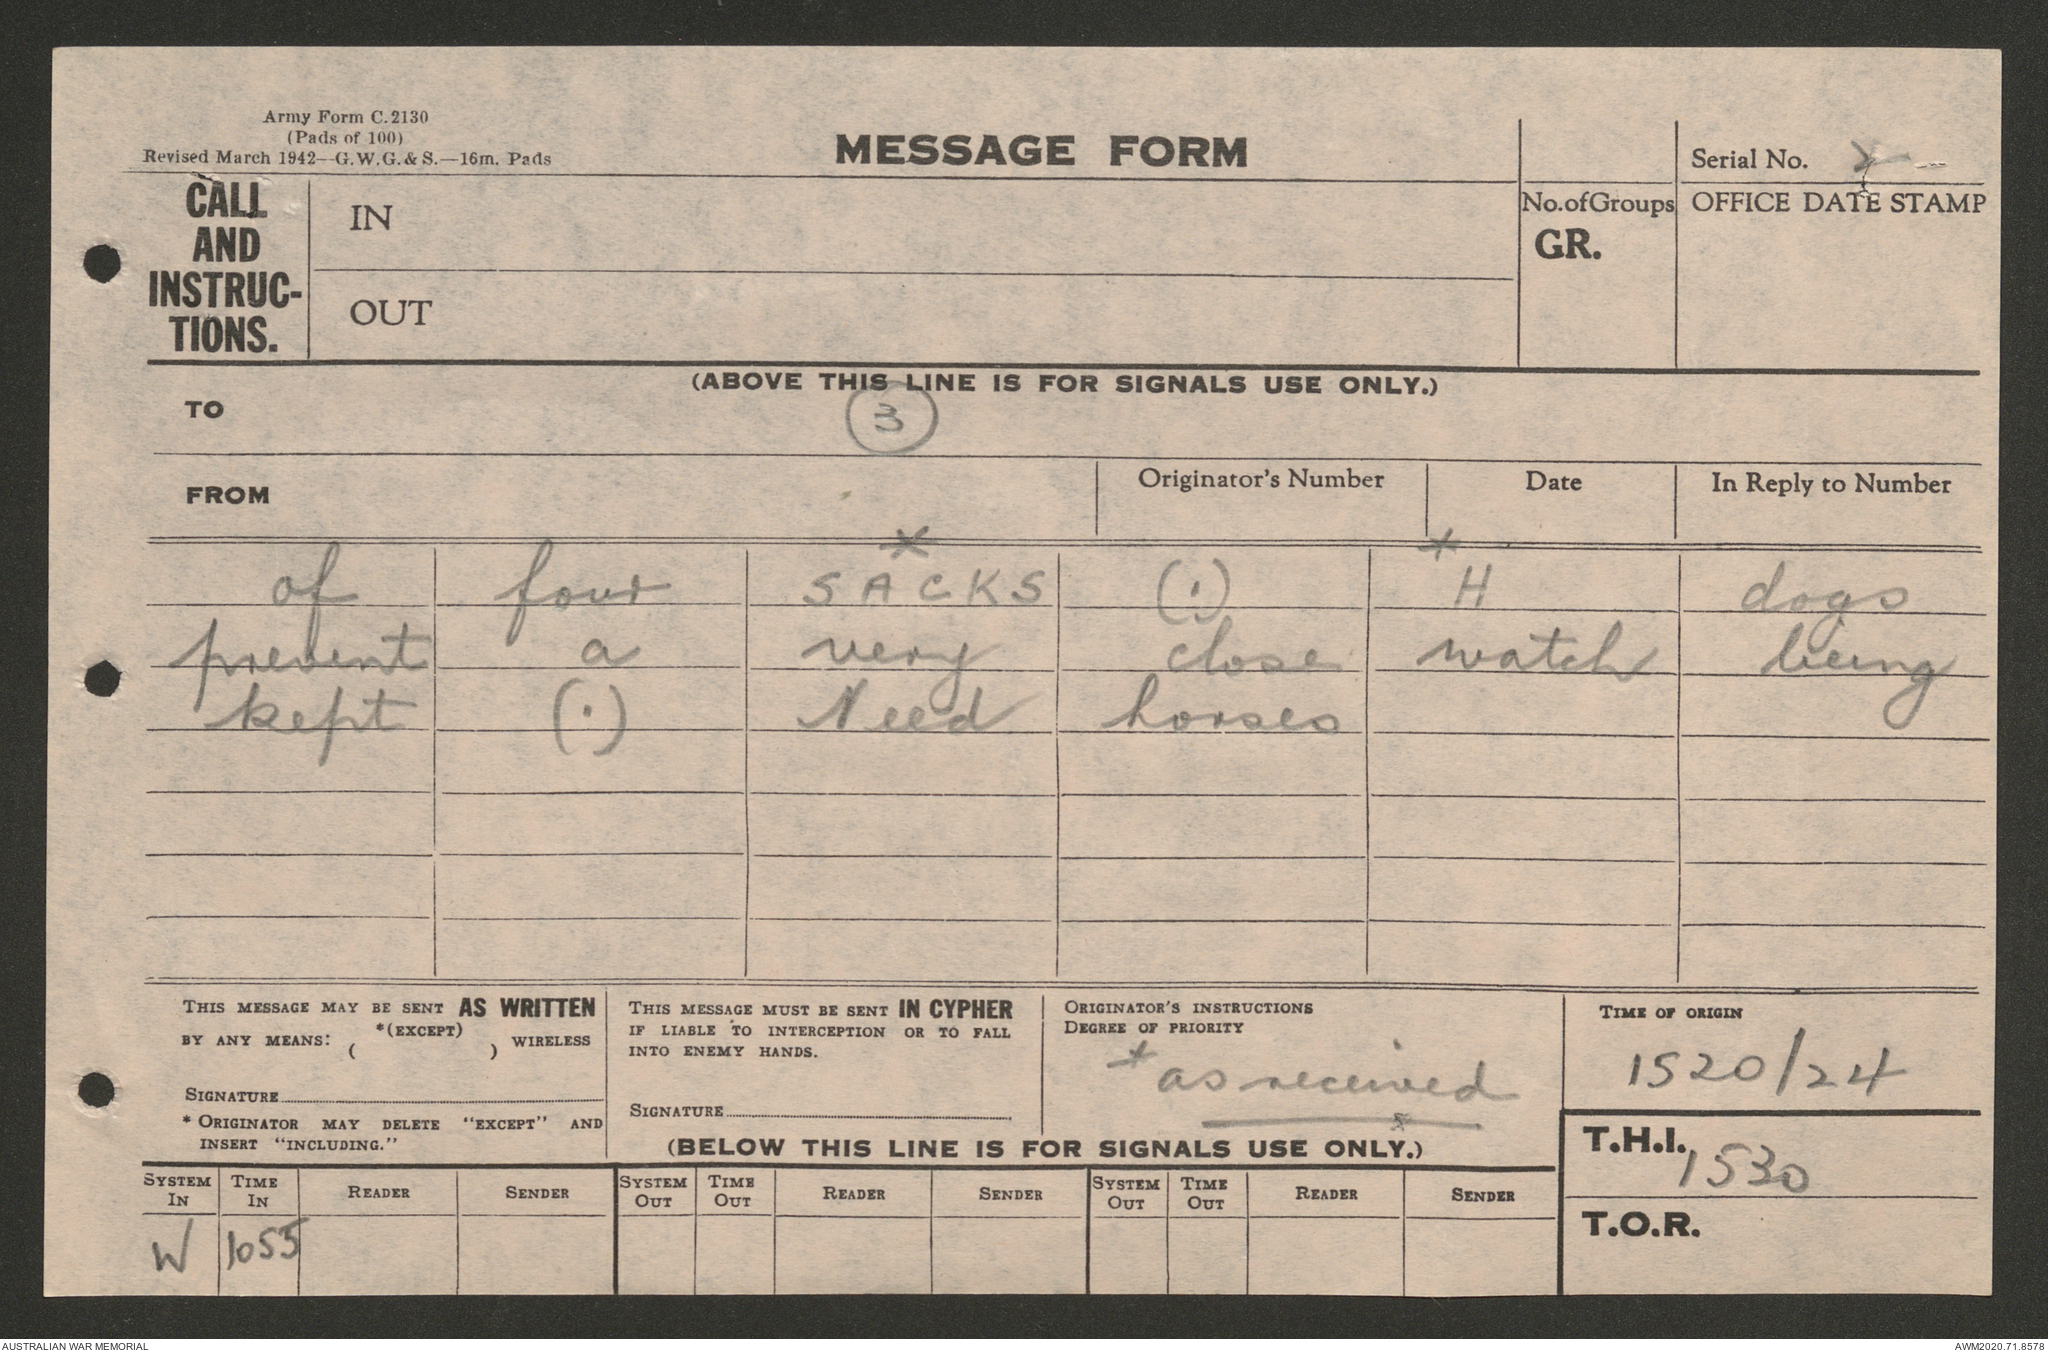 Army Form C.2130
(Pads of 100)
Revised March 1942—G.W.G.& S.—16m. Pads
MESSAGE FORM
Serial No.
CALL AND INSTRUC-TIONS.
IN
OUT
No.of Groups
GR.
OFFICE DATE STAMP
(ABOVE THIS LINE IS FOR SIGNALS USE ONLY.)
TO
3
FROM
Originator's Number
Date
In Reply to Number
* *
of four SACKS (.) H dogs
prevent a very close watch being
kept (.) Need horses
THIS MESSAGE MAY BE SENT AS WRITTEN
BY ANY MEANS: *(EXCEPT) ( ) WIRELESS
SIGNATURE
* ORIGINATOR MAY DELETE "EXCEPT" AND
INSERT "INCLUDING."
THIS MESSAGE MUST BE SENT IN CYPHER
IF LIABLE TO INTERCEPTION OR TO FALL
INTO ENEMY HANDS.
SIGNATURE
ORIGINATOR'S INSTRUCTIONS
DEGREE OF PRIORITY
* as received
TIME OF ORIGIN
1520/24
(BELOW THIS LINE IS FOR SIGNALS USE ONLY.)
T.H.I. 1530
T.O.R.
SYSTEM IN TIME IN READER SENDER SYSTEM OUT TIME OUT READER SENDER SYSTEM OUT TIME OUT READER SENDER
W 1055
AUSTRALIAN WAR MEMORIAL
AWM2020.71.8578